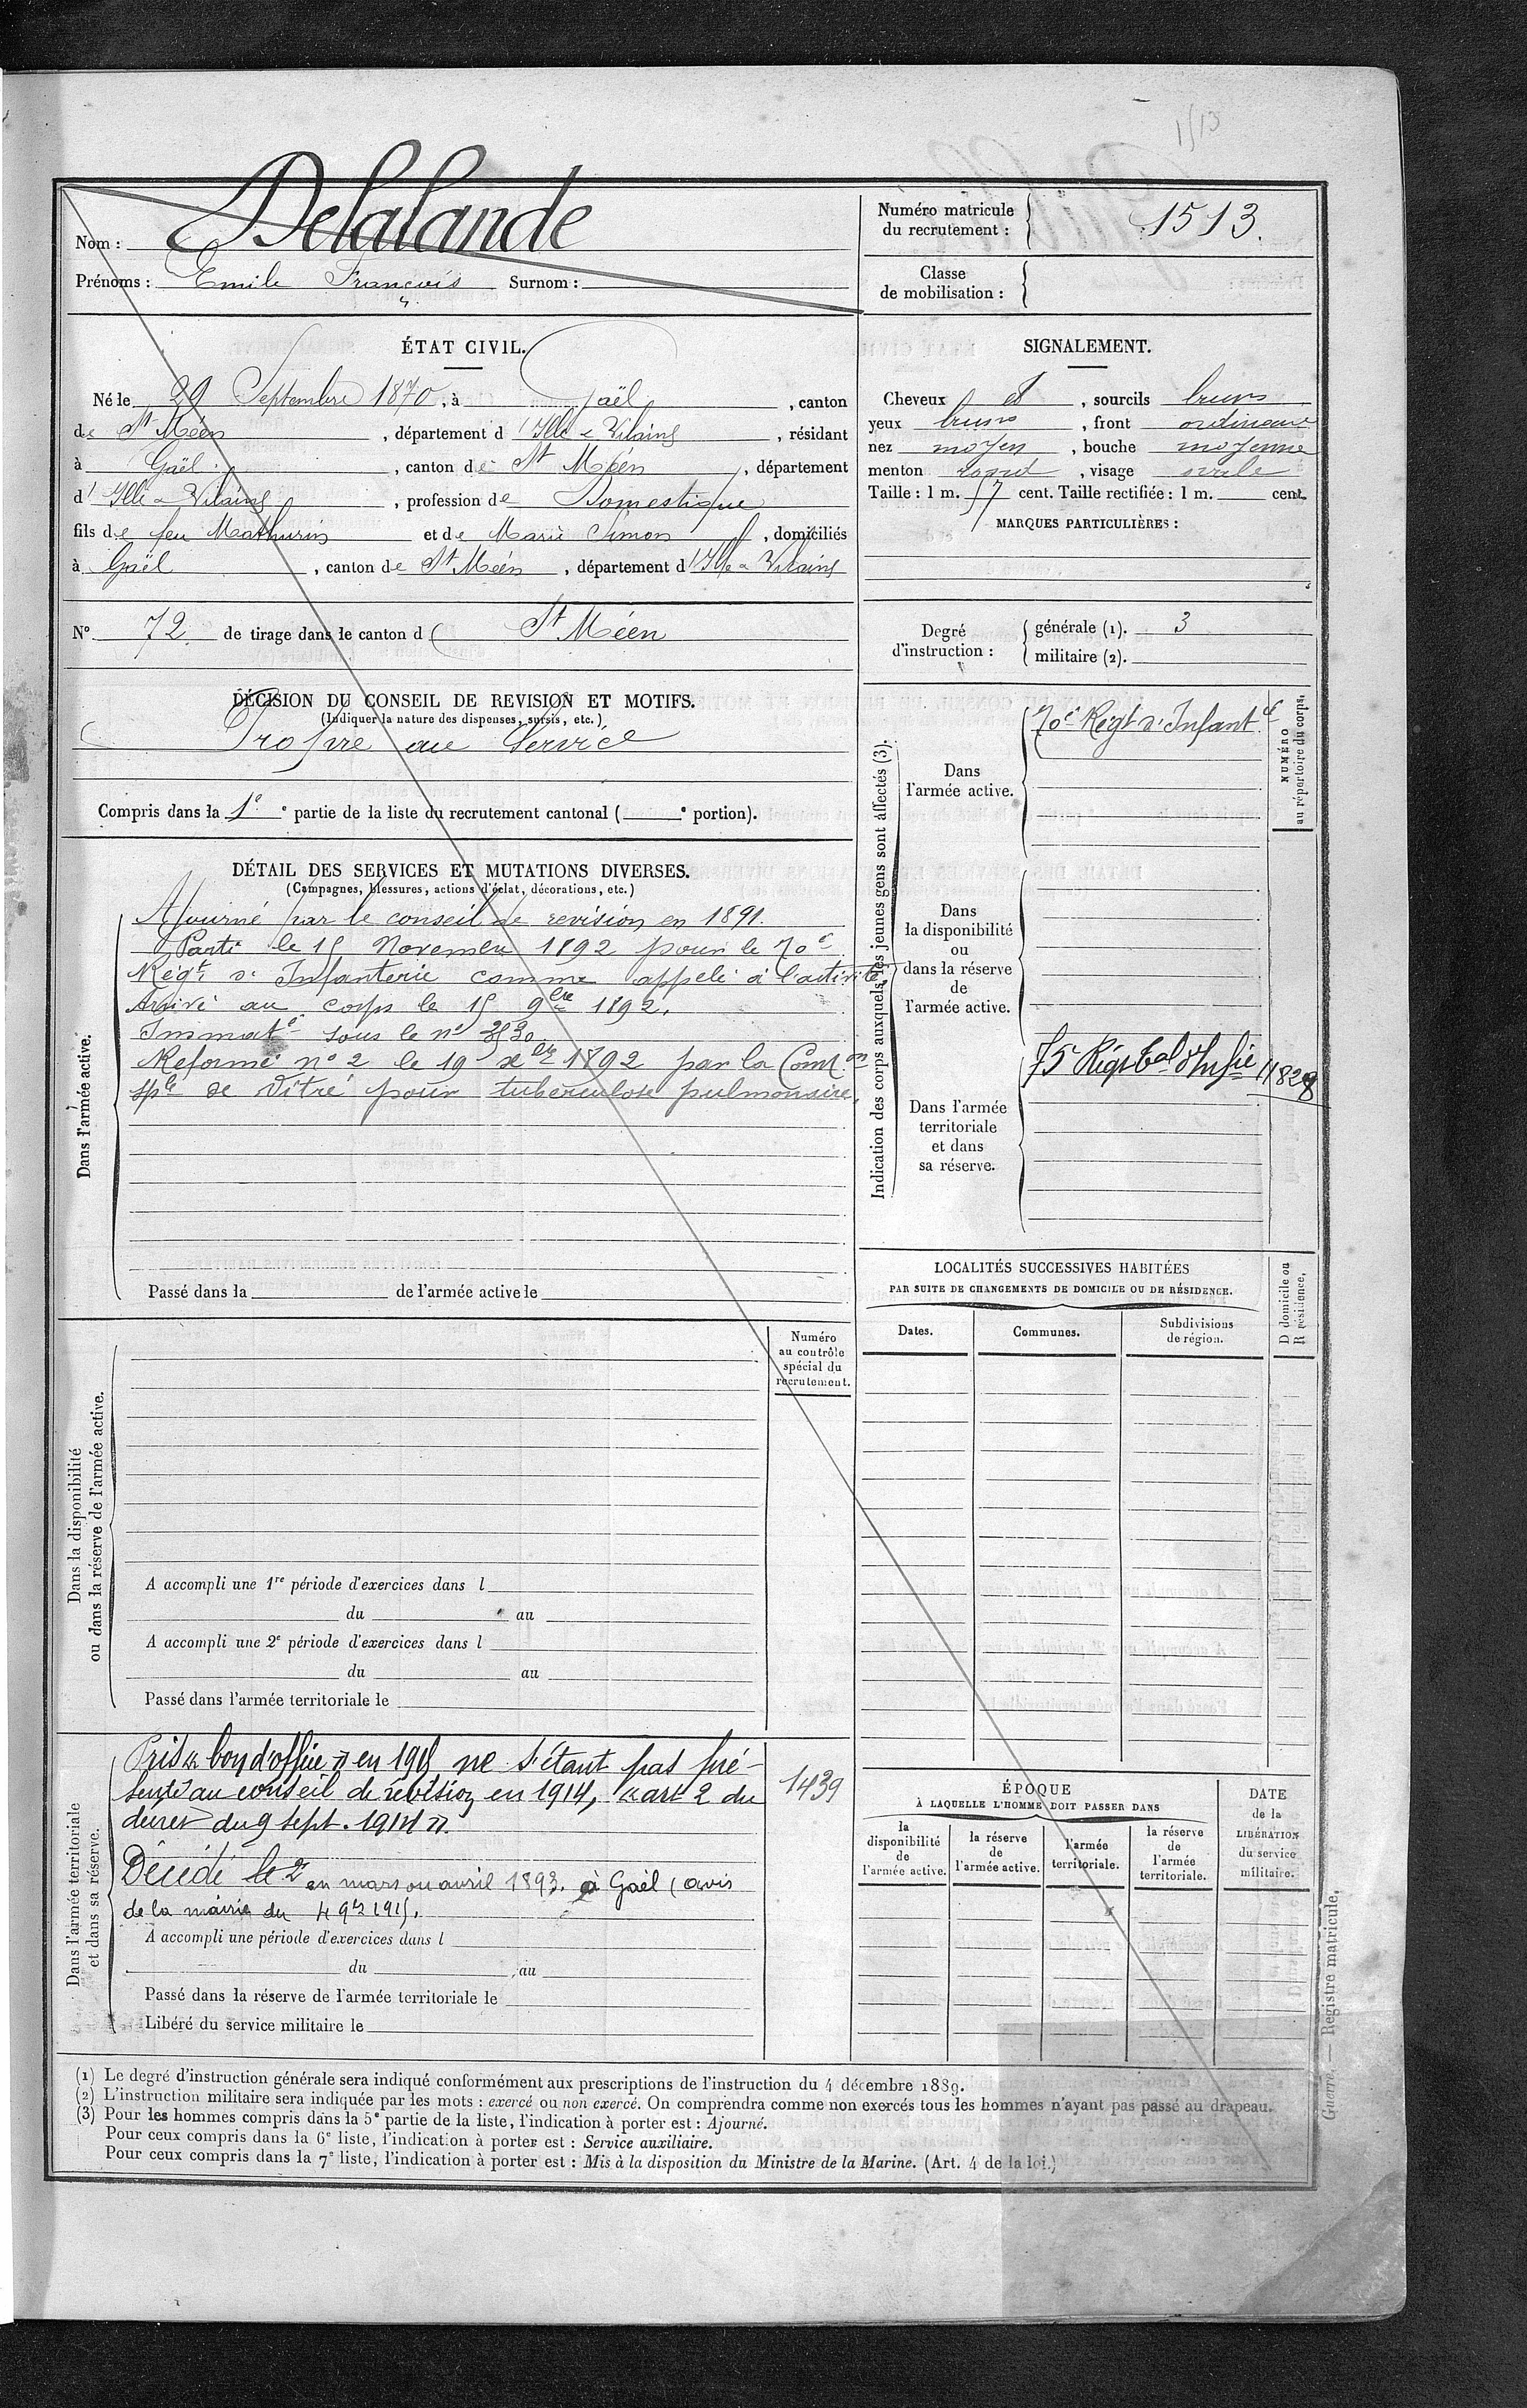 1513
Nom : Delalande
Prénoms : Emile François Surnom :
Numéro matricule du recrutement : 1513.
Classe de mobilisation :
ÉTAT CIVIL.
Né le 29 Septembre 1870, à Gaël, canton
de St Méen, département d'Ille & Vilaine, résidant
à Gaël, canton de St Méen, département
d'Ille & Vilaine, profession de Domestique
fils de feu Mathurin et de Marie Simon, domiciliés
à Gaël, canton de St Méen, département d'Ille & Vilaine
N° 72 de tirage dans le canton de St Méen
SIGNALEMENT.
Cheveux et, sourcils bruns
yeux bruns, front ordinaire
nez moyen, bouche moyenne
menton rond, visage ovale
Taille : 1 m. 57 cent. Taille rectifiée : 1 m. cent.
MARQUES PARTICULIÈRES :
Degré d'instruction : générale (1). 3
militaire (2).
DÉCISION DU CONSEIL DE REVISION ET MOTIFS.
(Indiquer la nature des dispenses, sursis, etc.)
Propre au Service
Compris dans la 1e e partie de la liste du recrutement cantonal ( e portion).
DÉTAIL DES SERVICES ET MUTATIONS DIVERSES.
(Campagnes, blessures, actions d'éclat, décorations, etc.)
Dans l'armée active.
Ajourné par le conseil de revision en 1891.
Parti le 15 Novembre 1892 pour le 70e
Régt d'Infanterie comme appelé à l'activité
Arrivé au corps le 15 9bre 1892.
Immaté sous le n°
Réformé n° 2 le 19 xbre 1892 par la Comon
Sple de Vitré pour tuberculose pulmonaire.
Passé dans la de l'armée active le
Indication des corps auxquels les jeunes gens sont affectés (3).
NUMÉRO au répertoire du corps.
Dans l'armée active.
70e Régt d'Infantie
Dans la disponibilité ou dans la réserve de l'armée active.
Dans l'armée territoriale et dans sa réserve.
75e Régt Tal d'Infie 11828
LOCALITÉS SUCCESSIVES HABITÉES
PAR SUITE DE CHANGEMENTS DE DOMICILE OU DE RÉSIDENCE.
Dates. Communes. Subdivisions de région. D domicile ou R résidence.
Dans la disponibilité ou dans la réserve de l'armée active.
Numéro au contrôle spécial du recrutement.
A accompli une 1re période d'exercices dans l
du au
A accompli une 2e période d'exercices dans l
du au
Passé dans l'armée territoriale le
Dans l'armée territoriale et dans sa réserve.
Pris « bon d'office » en 1915 ne s'étant pas pré-
senté au conseil de révision en 1914, « art 2 du
décret du 9 sept. 1914 ».
1439
Décédé le en mars ou avril 1893. à Gaël (avis
de la mairie du 4 9bre 1915.
A accompli une période d'exercices dans l
du au
Passé dans la réserve de l'armée territoriale le
Libéré du service militaire le
ÉPOQUE
À LAQUELLE L'HOMME DOIT PASSER DANS
la disponibilité de l'armée active. la réserve de l'armée active. l'armée territoriale. la réserve de l'armée territoriale.
DATE de la LIBÉRATION du service militaire.
(1) Le degré d'instruction générale sera indiqué conformément aux prescriptions de l'instruction du 4 décembre 1889.
(2) L'instruction militaire sera indiquée par les mots : exercé ou non exercé. On comprendra comme non exercés tous les hommes n'ayant pas passé au drapeau.
(3) Pour les hommes compris dans la 5e partie de la liste, l'indication à porter est : Ajourné.
Pour ceux compris dans la 6e liste, l'indication à porter est : Service auxiliaire.
Pour ceux compris dans la 7e liste, l'indication à porter est : Mis à la disposition du Ministre de la Marine. (Art. 4 de la loi.)
Guerre. — Registre matricule.